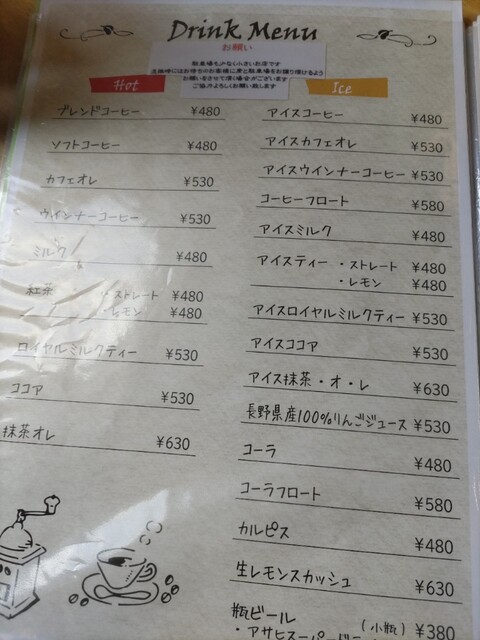 Drink Menu
お願い
駐車場も少なく小さいお店です
お願いをさせて頂く場合がございます
ご協力よろしくお願い致します
Hot
ブレンドコーヒー ¥480
ソフトコーヒー ¥480
カフェオレ ¥530
ウインナーコーヒー ¥530
ミルク ¥480
紅茶 ・ストレート ¥480
・レモン ¥480
ロイヤルミルクティー ¥530
ココア ¥530
抹茶オレ ¥630
Ice
アイスコーヒー ¥480
アイスカフェオレ ¥530
アイスウインナーコーヒー ¥530
コーヒーフロート ¥580
アイスミルク ¥480
アイスティー ・ストレート ¥480
・レモン ¥480
アイスロイヤルミルクティー ¥530
アイスココア ¥530
アイス抹茶・オ・レ ¥630
長野県産100%りんごジュース ¥530
コーラ ¥480
コーラフロート ¥580
カルピス ¥480
生レモンスカッシュ ¥630
瓶ビール (小瓶) ¥380
・アサヒスーパードライ